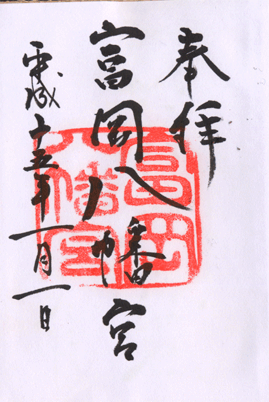 奉拝
富岡八幡宮
平成十五年一月一日
富岡
八幡宮